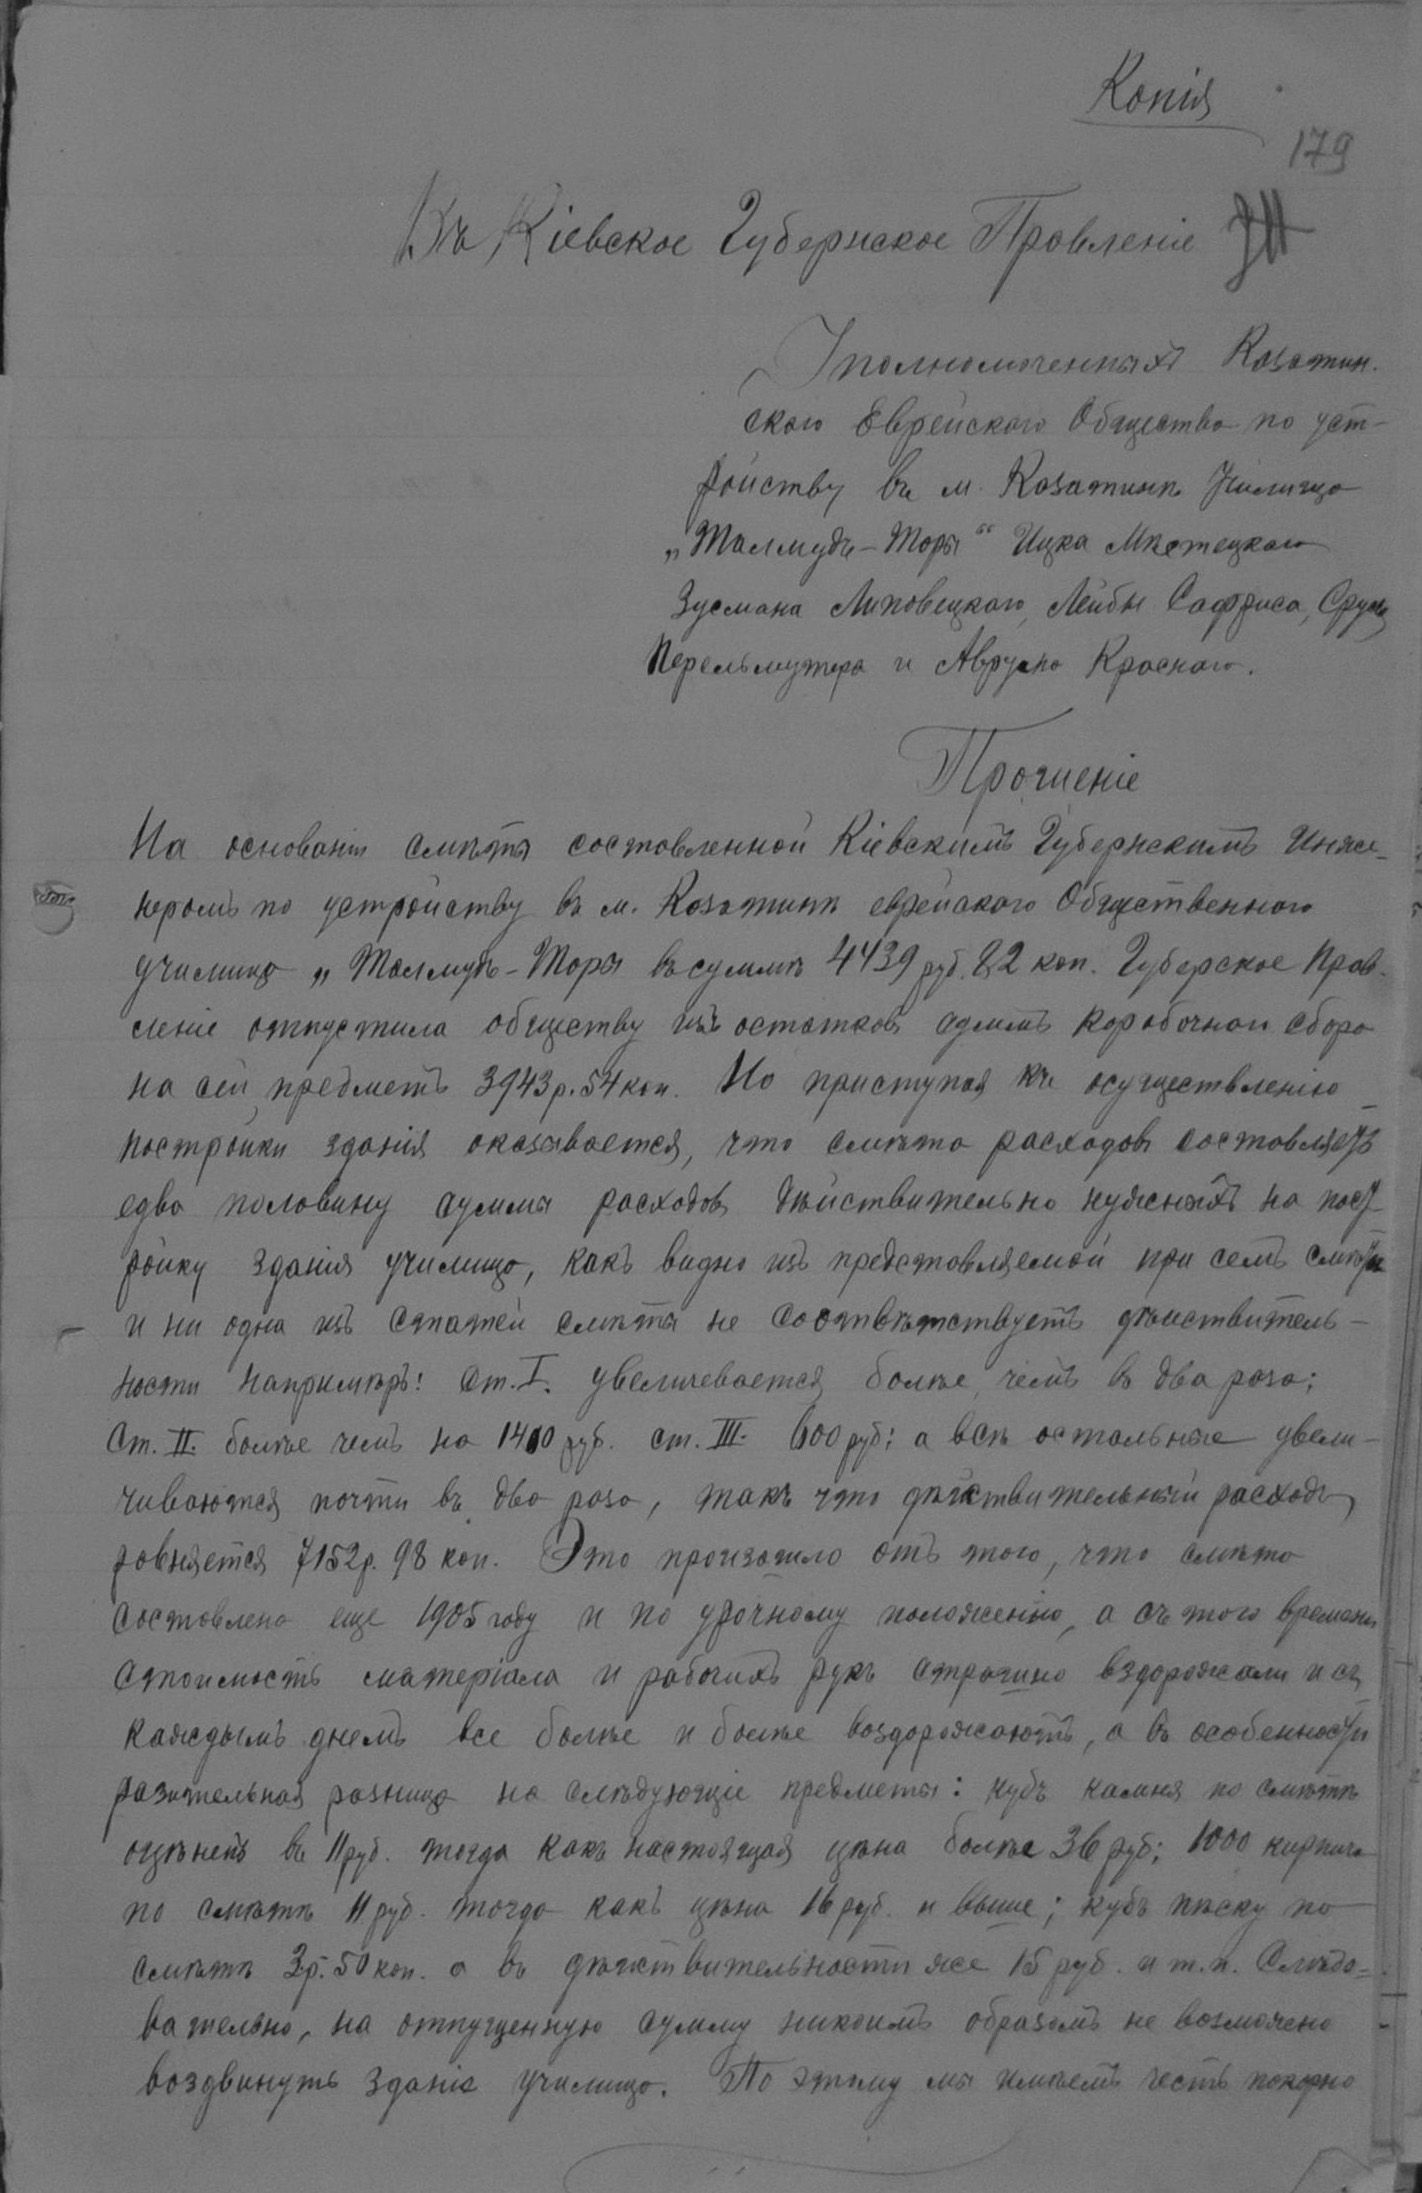 Копія
179
Въ Кіевское Губернское Правленіе
Уполномоченныхъ Казатин-
скаго Еврейскаго Общества по уст-
ройству въ м. Казатинѣ Училища
„Талмудъ-Торы“ Ицка Мястецкаго
Зусмана Липовецкаго, Лейбы Сафриса, Сруля
Перельмутера и Аврума Краснаго.
Прошеніе
На основаніи смѣты составленной Кіевскимъ Губернскимъ Инже-
неромъ по устройству въ м. Казатинѣ еврейскаго Общественнаго
училища „Талмудъ-Торы въ суммѣ 4439 руб. 82 коп. Губерское Прав-
леніе отпустила обществу изъ остатковъ суммъ коробочнаго сбора
на сей предметъ 3943 р. 54 коп. Но приступая къ осуществленію
постройки зданія оказывается, что смѣта расходовъ составляетъ
едва половину суммы расходовъ дѣйствительно нужныхъ на пост-
ройку зданія училища, какъ видно изъ представляемой при семъ смѣты
и ни одна изъ статей смѣты не соотвѣтствуетъ дѣйствитель-
ности напримѣръ: ст. I. увеличевается болѣе, чемъ въ два раза;
ст. II. болѣе чемъ на 1400 руб. ст. III. 600 руб; а всѣ остальные увели-
чиваются почти въ два раза, такъ что дѣйствительный расходъ
ровняется 7152 р. 98 коп. Это произошло отъ того, что смѣта
составлена еще 1905 году и по урочному положенію, а съ того времени
стоимость матеріала и рабочихъ рукъ страшно вздорожали и съ
каждымъ днемъ все болѣе и болѣе воздорожаютъ, а въ особенности
разительная разница на слѣдующіе предметы: кубъ камня по смѣтѣ
оцѣненъ въ 11 руб. тогда какъ настоящая цѣна болѣе 36 руб; 1000 кирпича
по смѣтѣ 11 руб. тогда какъ цѣна 16 руб. и выше; кубъ пѣску по
смѣтѣ 3 р. 50 коп. а въ дѣйствительности же 15 руб. и т. п. Слѣдо-
вательно, на отпущенную сумму никоимъ образомъ не возможно
воздвинуть зданіе училища. По этому мы имѣемъ честь покорно